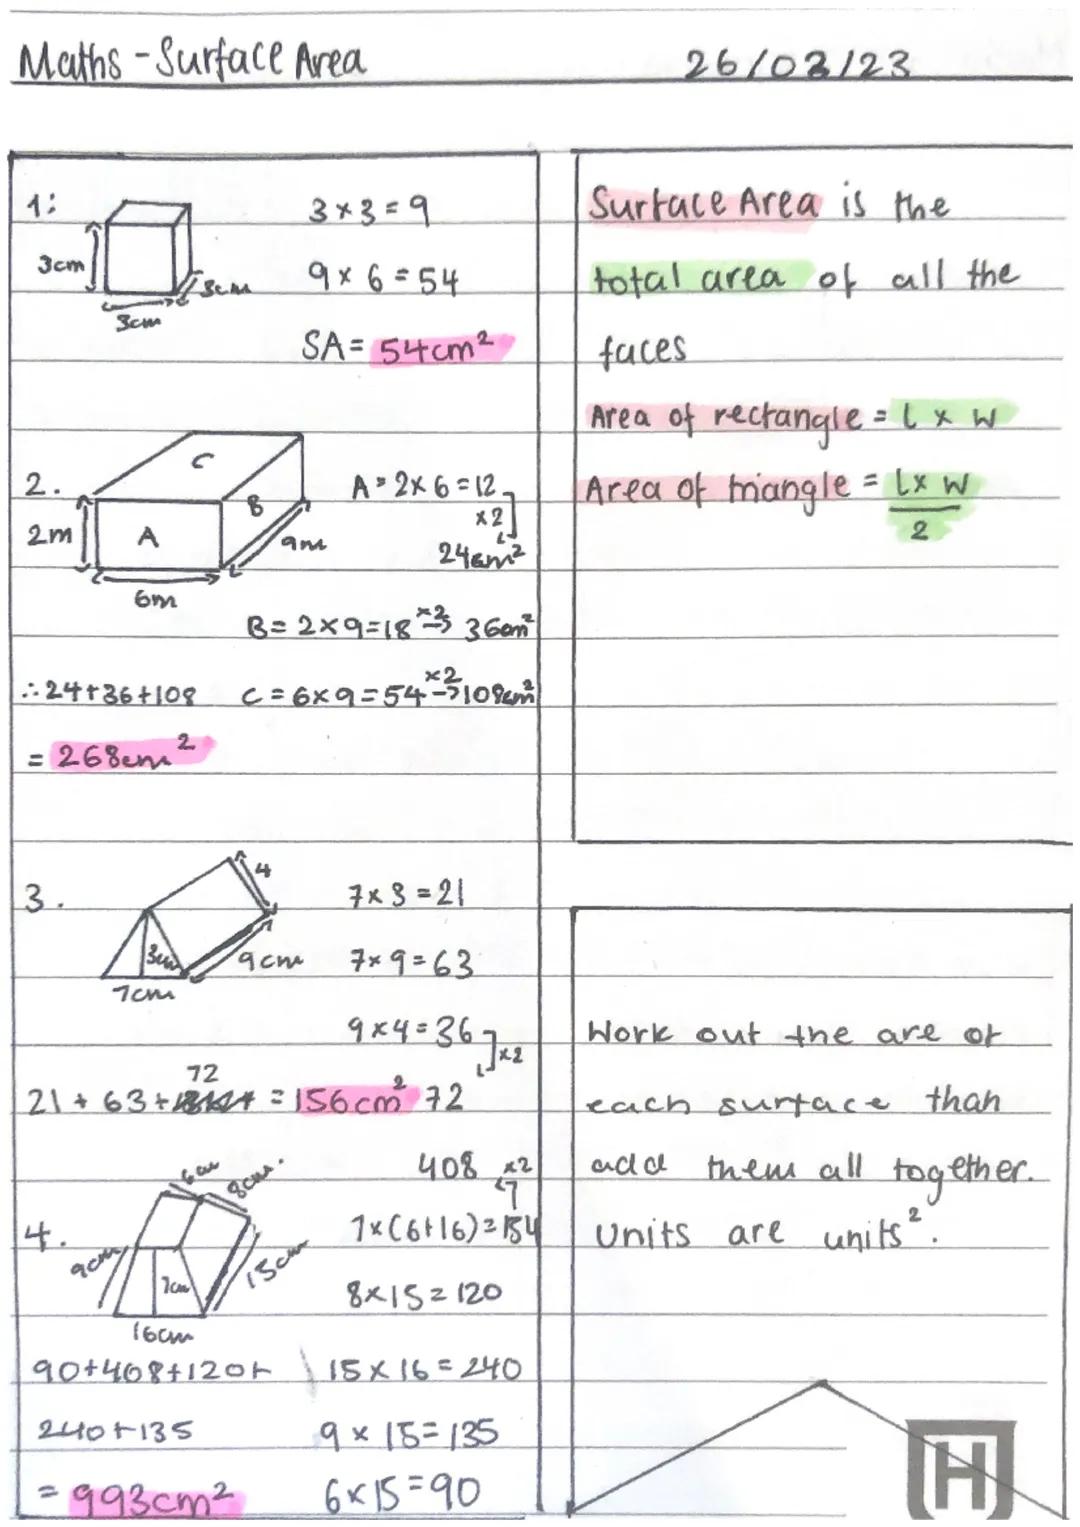 Maths - Surface Area
26/02/23
1:
3cm
3cm
3cm
3 × 3 = 9
9 × 6 = 54
SA = 54cm²
2.
C
B
A
2m
6m
9m
A = 2 × 6 = 12
×2
24cm²
B = 2 × 9 = 18 ×2→ 36cm²
∴ 24 + 36 + 108
C = 6 × 9 = 54 ×2→ 108cm²
= 268cm²
3.
4
3cm
9cm
7cm
7 × 3 = 21
7 × 9 = 63
9 × 4 = 36
×2
72
72
21 + 63 + = 156cm²
4.
6cm
8cm.
9cm
7cm
15cm
16cm
408 ×2
7 × (6 + 16) = 154
8 × 15 = 120
15 × 16 = 240
9 × 15 = 135
6 × 15 = 90
90 + 408 + 120 +
240 + 135
= 993cm²
Surface Area is the
total area of all the
faces
Area of rectangle = l × w
Area of triangle = l × w
2
Work out the are of
each surface than
add them all together.
Units are units².
H